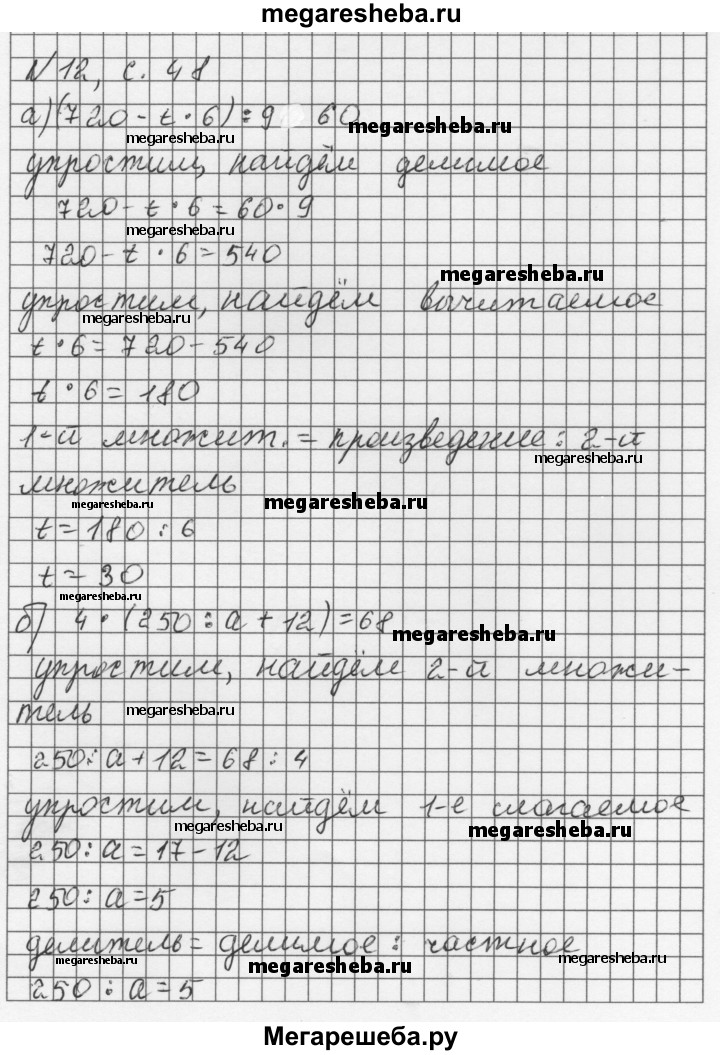 megaresheba.ru
№12, с. 48
а) (720 - t · 6) : 9 60
megaresheba.ru
упростим, найдём делимое
720 - t · 6 = 60 · 9
megaresheba.ru
720 - t · 6 = 540
megaresheba.ru
упростим, найдём вычитаемое
megaresheba.ru
t · 6 = 720 - 540
t · 6 = 180
1-й множит. = произведение : 2-й
megaresheba.ru
множитель
megaresheba.ru
megaresheba.ru
t = 180 : 6
t = 30
megaresheba.ru
б) 4 · (250 : a + 12) = 68
megaresheba.ru
упростим, найдём 2-й множи-
тель
megaresheba.ru
250 : a + 12 = 68 : 4
упростим, найдём 1-е слагаемое
megaresheba.ru
megaresheba.ru
250 : a = 17 - 12
250 : a = 5
делитель = делимое : частное
megaresheba.ru
megaresheba.ru
megaresheba.ru
250 : a = 5
Мегарешеба.ру